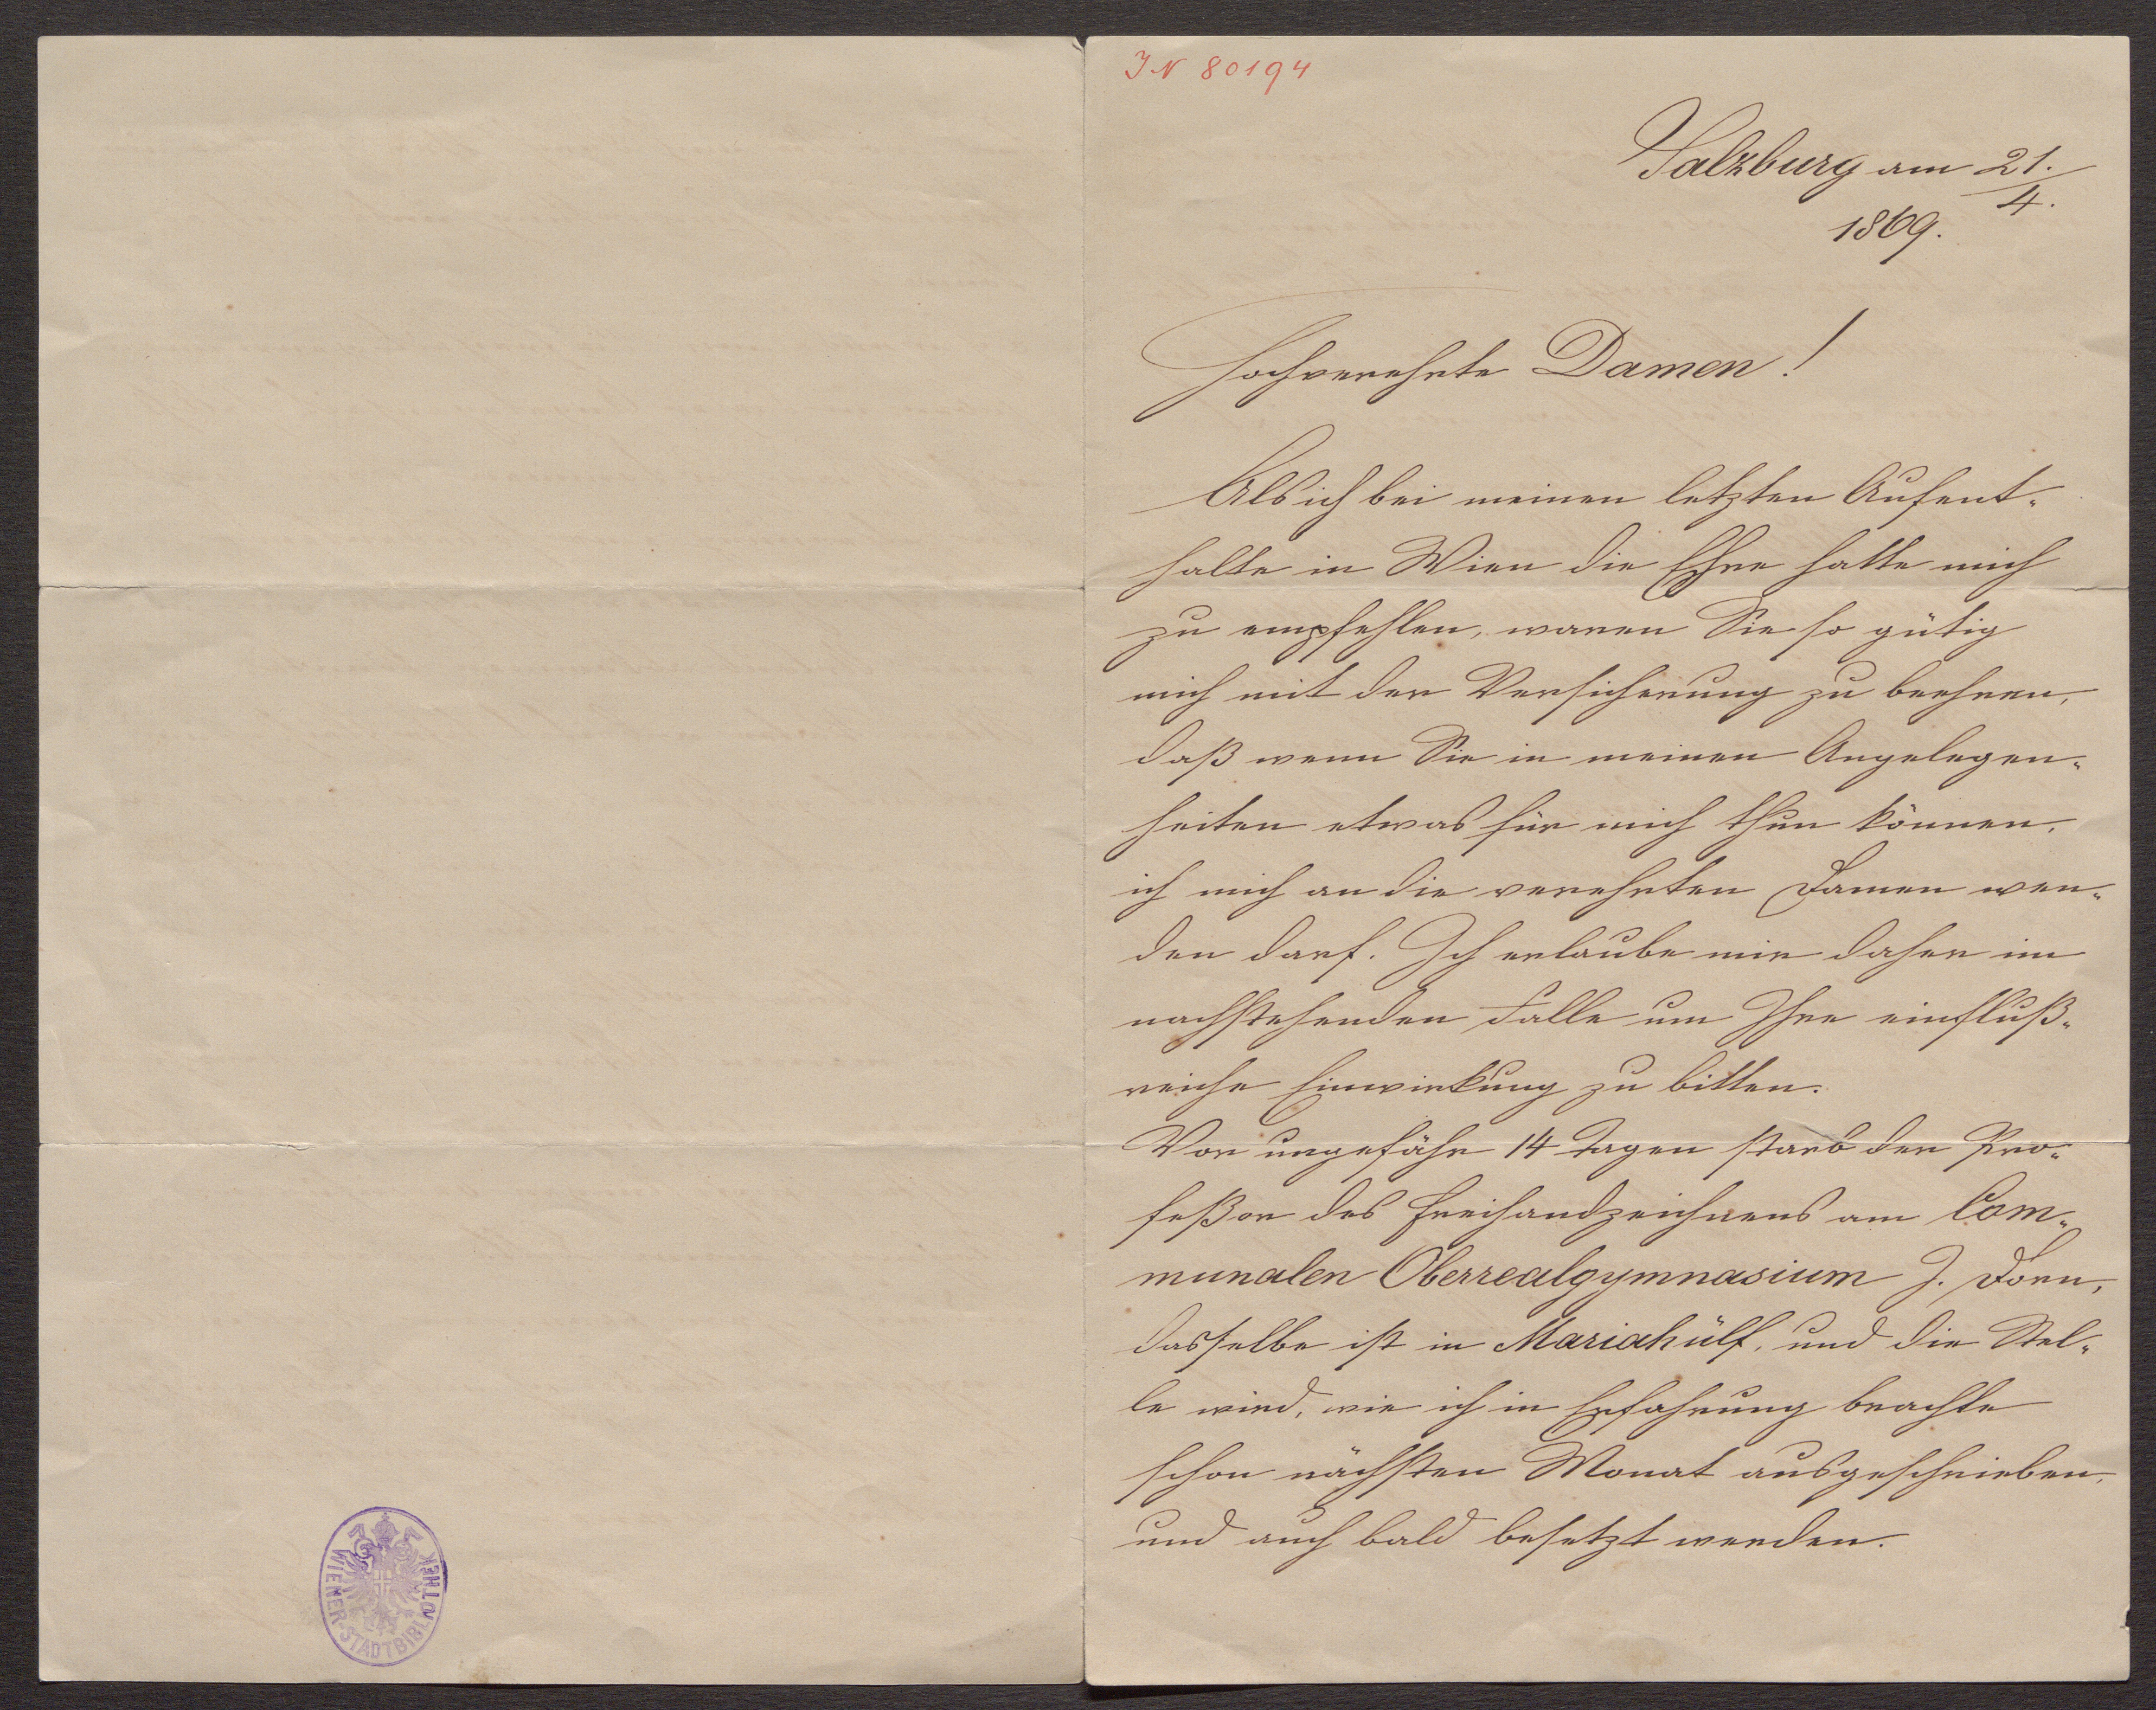 IN 80194
Salzburg am 21./4.
1869.
Hochverehrte Damen!
Als ich bei meinen letzten Aufent-
halte in Wien die Ehre hatte mich
zu empfehlen, waren Sie so gütig
mich mit der Versicherung zu beehren,
daß wenn Sie in meinen Angelegen-
heiten etwas für mich thun können,
ich mich an die verehrten Damen wen-
den darf. Ich erlaube mir daher im
nachstehenden Falle um Ihre einfluß-
reiche Einwirkung zu bitten.
Vor ungefähr 14 Tagen starb der Pro-
feßor des Freihandzeichnens am Com-
munalen Oberrealgymnasium J. Dorn,
dasselbe ist in Mariahülf, und die Stel-
le wird, wie ich in Erfahrung brachte
schon nächsten Monat ausgeschrieben,
und auch bald besetzt werden.
WIENER-STADTBIBLIOTHEK